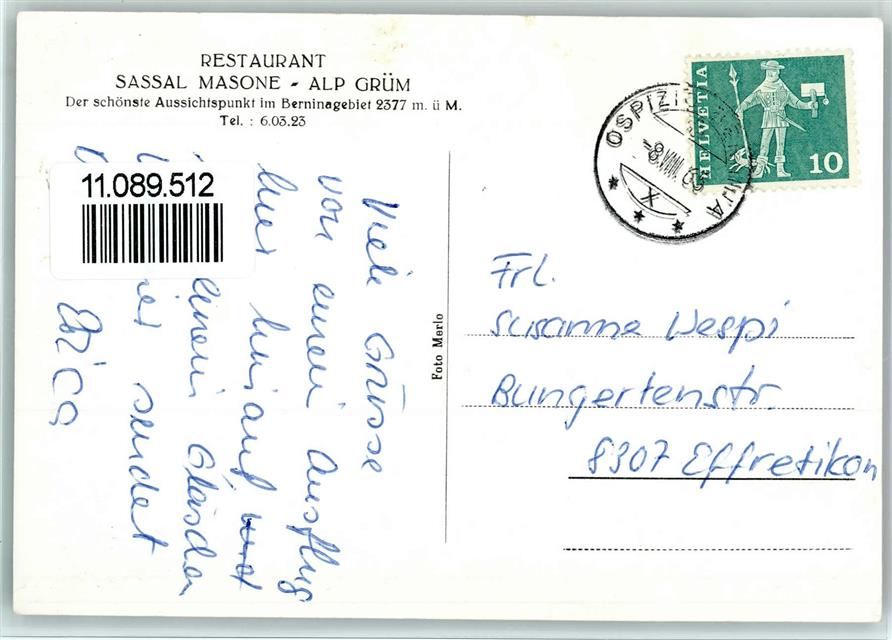 RESTAURANT
SASSAL MASONE - ALP GRÜM
Der schönste Aussichtspunkt im Berninagebiet 2377 m. ü M.
Tel. : 6.03.23
11.089.512
Viele Grüsse
von einem Ausflug
hier hinauf, und
einem Gläschen
sendet
Foto Marlo
HELVETIA
10
OSPIZIO BERNINA
Frl.
Susanne Wespi
Bungertenstr.
8307 Effretikon